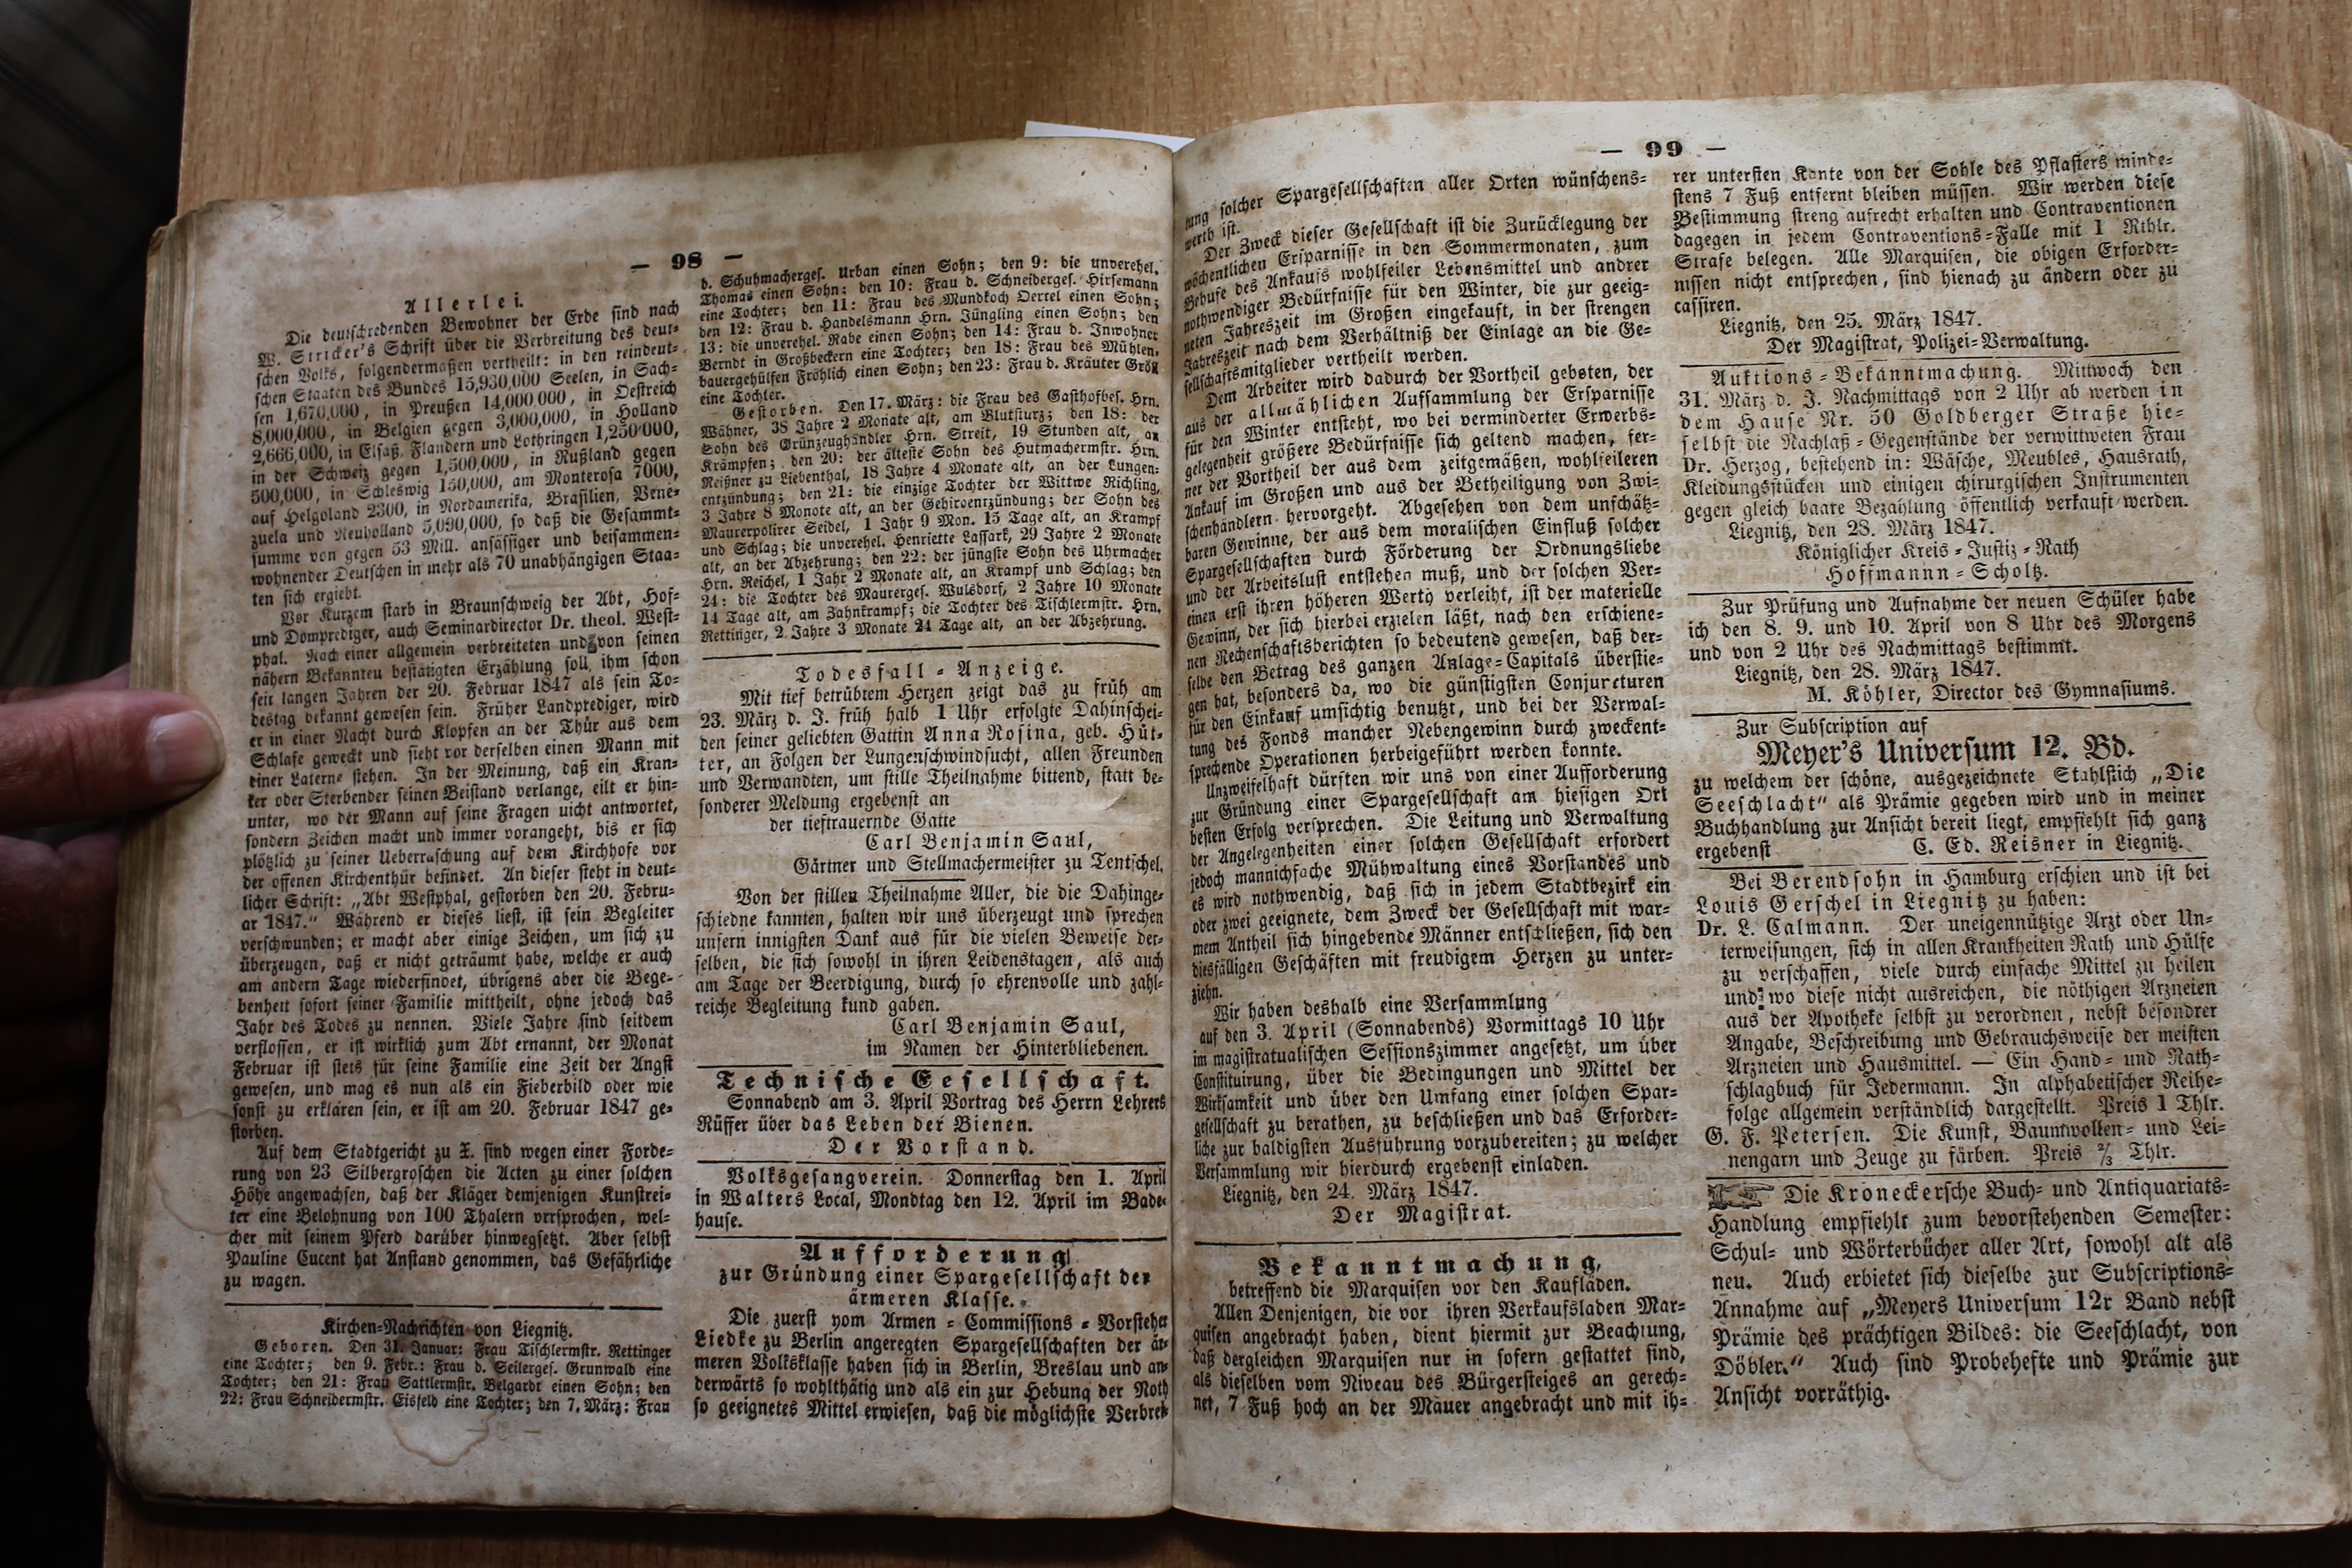 — 98 —
Allerlei.
Die deutschredenden Bewohner der Erde sind nach
W. Stricker's Schrift über die Verbreitung des deut-
schen Volks, folgendermaßen vertheilt: in den reindeut-
schen Staaten des Bundes 15,930,000 Seelen, in Sach-
sen 1,670,000, in Preußen 14,000 000, in Oestreich
8,000,000, in Belgien gegen 3,000,000, in Holland
2,666,000, in Elsaß, Flandern und Lothringen 1,250'000,
in der Schweiz gegen 1,500,000, in Rußland gegen
500,000, in Schleswig 150,000, am Monterosa 7000,
auf Helgoland 2300, in Nordamerika, Brasilien, Vene-
zuela und Neuholland 5,090,000, so daß die Gesammt-
summe von gegen 53 Mill. ansässiger und beisammen-
wohnender Deutschen in mehr als 70 unabhängigen Staa-
ten sich ergiebt.
Vor Kurzem starb in Braunschweig der Abt, Hof-
und Domprediger, auch Seminardirector Dr. theol. West-
phal. Nach einer allgemein verbreiteten und von seinen
nähern Bekannten bestätigten Erzählung soll ihm schon
seit langen Jahren der 20. Februar 1847 als sein To-
destag bekannt gewesen sein. Früher Landprediger, wird
er in einer Nacht durch Klopfen an der Thür aus dem
Schlafe geweckt und sieht vor derselben einen Mann mit
einer Laterne stehen. In der Meinung, daß ein Kran-
ker oder Sterbender seinen Beistand verlange, eilt er hin-
unter, wo der Mann auf seine Fragen nicht antwortet,
sondern Zeichen macht und immer vorangeht, bis er sich
plötzlich zu seiner Ueberraschung auf dem Kirchhofe vor
der offenen Kirchenthür befindet. An dieser steht in deut-
licher Schrift: „Abt Westphal, gestorben den 20. Febru-
ar 1847.“ Während er dieses liest, ist sein Begleiter
verschwunden; er macht aber einige Zeichen, um sich zu
überzeugen, daß er nicht geträumt habe, welche er auch
am andern Tage wiederfindet, übrigens aber die Bege-
benheit sofort seiner Familie mittheilt, ohne jedoch das
Jahr des Todes zu nennen. Viele Jahre sind seitdem
verflossen, er ist wirklich zum Abt ernannt, der Monat
Februar ist stets für seine Familie eine Zeit der Angst
gewesen, und mag es nun als ein Fieberbild oder wie
sonst zu erklären sein, er ist am 20. Februar 1847 ge-
storben.
Auf dem Stadtgericht zu X. sind wegen einer Forde-
rung von 23 Silbergroschen die Acten zu einer solchen
Höhe angewachsen, daß der Kläger demjenigen Kunstrei-
ter eine Belohnung von 100 Thalern vrrsprochen, wel-
cher mit seinem Pferd darüber hinwegsetzt. Aber selbst
Pauline Cucent hat Anstand genommen, das Gefährliche
zu wagen.
Kirchen-Nachrichten von Liegnitz.
Geboren. Den 31. Januar: Frau Tischlermstr. Rettinger
eine Tochter; den 9. Febr.: Frau d. Seilerges. Grunwald eine
Tochter; den 21: Frau Sattlermstr. Belgardt einen Sohn; den
22: Frau Schneidermstr. Eisfeld eine Tochter; den 7. März: Frau
d. Schuhmacherges. Urban einen Sohn; den 9: die unverehel.
Thomas einen Sohn; den 10: Frau d. Schneiderges. Hirsemann
eine Tochter; den 11: Frau des Mundkoch Oertel einen Sohn;
den 12: Frau d. Handelsmann Hrn. Jüngling einen Sohn; den
13: die unverehel. Rabe einen Sohn; den 14: Frau d. Inwohner
Berndt in Großbeckern eine Tochter; den 18: Frau des Mühlen-
bauergehülfen Fröhlich einen Sohn; den 23: Frau d. Kräuter Gröll
eine Tochter.
Gestorben. Den 17. März: die Frau des Gasthofbes. Hrn.
Wähner, 38 Jahre 2 Monate alt, am Blutsturz; den 18: der
Sohn des Grünzeughändler Hrn. Streit, 19 Stunden alt, an
Krämpfen; den 20: der älteste Sohn des Hutmachermstr. Hrn.
Reißner zu Liebenthal, 18 Jahre 4 Monate alt, an der Lungen-
entzündung; den 21: die einzige Tochter der Wittwe Nichling,
3 Jahre 8 Monote alt, an der Gehirnentzündung; der Sohn des
Maurerpolirer Seidel, 1 Jahr 9 Mon. 15 Tage alt, an Krampf
und Schlag; die unverehel. Henriette Lassark, 29 Jahre 2 Monate
alt, an der Abzehrung; den 22: der jüngste Sohn des Uhrmacher
Hrn. Reichel, 1 Jahr 2 Monate alt, an Krampf und Schlag; den
24: die Tochter des Maurerges. Wulsdorf, 2 Jahre 10 Monate
14 Tage alt, am Zahnkrampf; die Tochter des Tischlermstr. Hrn.
Rettinger, 2 Jahre 3 Monate 24 Tage alt, an der Abzehrung.
Todesfall-Anzeige.
Mit tief betrübtem Herzen zeigt das zu früh am
23. März d. J. früh halb 1 Uhr erfolgte Dahinschei-
den seiner geliebten Gattin Anna Rosina, geb. Hüt-
ter, an Folgen der Lungenschwindsucht, allen Freunden
und Verwandten, um stille Theilnahme bittend, statt be-
sonderer Meldung ergebenst an
der tieftrauernde Gatte
Carl Benjamin Saul,
Gärtner und Stellmachermeister zu Tentschel.
Von der stillen Theilnahme Aller, die die Dahinge-
schiedne kannten, halten wir uns überzeugt und sprechen
unsern innigsten Dank aus für die vielen Beweise der-
selben, die sich sowohl in ihren Leidenstagen, als auch
am Tage der Beerdigung, durch so ehrenvolle und zahl-
reiche Begleitung kund gaben.
Carl Benjamin Saul,
im Namen der Hinterbliebenen.
Technische Gesellschaft.
Sonnabend am 3. April Vortrag des Herrn Lehrers
Rüffer über das Leben der Bienen.
Der Vorstand.
Volksgesangverein. Donnerstag den 1. April
in Walters Local, Mondtag den 12. April im Bade-
hause.
Aufforderung
zur Gründung einer Spargesellschaft der
ärmeren Klasse.
Die zuerst vom Armen-Commissions-Vorsteher
Liedke zu Berlin angeregten Spargesellschaften der är-
meren Volksklasse haben sich in Berlin, Breslau und an-
derwärts so wohlthätig und als ein zur Hebung der Noth
so geeignetes Mittel erwiesen, daß die möglichste Verbrei-
— 99 —
tung solcher Spargesellschaften aller Orten wünschens-
werth ist.
Der Zweck dieser Gesellschaft ist die Zurücklegung der
wöchentlichen Ersparnisse in den Sommermonaten, zum
Behufe des Ankaufs wohlfeiler Lebensmittel und andrer
nothwendiger Bedürfnisse für den Winter, die zur geeig-
neten Jahreszeit im Großen eingekauft, in der strengen
Jahreszeit nach dem Verhältniß der Einlage an die Ge-
sellschaftsmitglieder vertheilt werden.
Dem Arbeiter wird dadurch der Vortheil geboten, der
aus der allmählichen Aufsammlung der Ersparnisse
für den Winter entsteht, wo bei verminderter Erwerbs-
gelegenheit größere Bedürfnisse sich geltend machen, fer-
ner der Vortheil der aus dem zeitgemäßen, wohlfeileren
Ankauf im Großen und aus der Betheiligung von Zwi-
schenhändlern hervorgeht. Abgesehen von dem unschätz-
baren Gewinne, der aus dem moralischen Einfluß solcher
Spargesellschaften durch Förderung der Ordnungsliebe
und der Arbeitslust entstehen muß, und der solchen Ver-
einen erst ihren höheren Werth verleiht, ist der materielle
Gewinn, der sich hierbei erzielen läßt, nach den erschiene-
nen Rechenschaftsberichten so bedeutend gewesen, daß der-
selbe den Betrag des ganzen Anlage-Capitals überstie-
gen hat, besonders da, wo die günstigsten Conjuncturen
für den Einkauf umsichtig benutzt, und bei der Verwal-
tung des Fonds mancher Nebengewinn durch zweckent-
sprechende Operationen herbeigeführt werden konnte.
Unzweifelhaft dürften wir uns von einer Aufforderung
zur Gründung einer Spargesellschaft am hiesigen Ort
besten Erfolg versprechen. Die Leitung und Verwaltung
der Angelegenheiten einer solchen Gesellschaft erfordert
jedoch mannichfache Mühwaltung eines Vorstandes und
es wird nothwendig, daß sich in jedem Stadtbezirk ein
oder zwei geeignete, dem Zweck der Gesellschaft mit war-
mem Antheil sich hingebende Männer entschließen, sich den
diesfälligen Geschäften mit freudigem Herzen zu unter-
ziehn.
Wir haben deshalb eine Versammlung
auf den 3. April (Sonnabends) Vormittags 10 Uhr
im magistratualischen Sessionszimmer angesetzt, um über
Constituirung, über die Bedingungen und Mittel der
Wirksamkeit und über den Umfang einer solchen Spar-
gesellschaft zu berathen, zu beschließen und das Erforder-
liche zur baldigsten Ausführung vorzubereiten; zu welcher
Versammlung wir hierdurch ergebenst einladen.
Liegnitz, den 24. März 1847.
Der Magistrat.
Bekanntmachung,
betreffend die Marquisen vor den Kaufläden.
Allen Denjenigen, die vor ihren Verkaufsladen Mar-
quisen angebracht haben, dient hiermit zur Beachtung,
daß dergleichen Marquisen nur in sofern gestattet sind,
als dieselben vom Niveau des Bürgersteiges an gerech-
net, 7 Fuß hoch an der Mauer angebracht und mit ih-
rer untersten Kante von der Sohle des Pflasters minde-
stens 7 Fuß entfernt bleiben müssen. Wir werden diese
Bestimmung streng aufrecht erhalten und Contraventionen
dagegen in jedem Contraventions-Falle mit 1 Rthlr.
Strafe belegen. Alle Marquisen, die obigen Erforder-
nissen nicht entsprechen, sind hienach zu ändern oder zu
cassiren.
Liegnitz, den 25. März 1847.
Der Magistrat, Polizei-Verwaltung.
Auktions-Bekanntmachung. Mittwoch den
31. März d. J. Nachmittags von 2 Uhr ab werden in
dem Hause Nr. 50 Goldberger Straße hie-
selbst die Nachlaß-Gegenstände der verwittweten Frau
Dr. Herzog, bestehend in: Wäsche, Meubles, Hausrath,
Kleidungsstücken und einigen chirurgischen Instrumenten
gegen gleich baare Bezahlung öffentlich verkauft werden.
Liegnitz, den 28. März 1847.
Königlicher Kreis-Justiz-Rath
Hoffmannn-Scholtz.
Zur Prüfung und Aufnahme der neuen Schüler habe
ich den 8. 9. und 10. April von 8 Uhr des Morgens
und von 2 Uhr des Nachmittags bestimmt.
Liegnitz, den 28. März 1847.
M. Köhler, Director des Gymnasiums.
Zur Subscription auf
Meyer's Universum 12. Bd.
zu welchem der schöne, ausgezeichnete Stahlstich „Die
Seeschlacht“ als Prämie gegeben wird und in meiner
Buchhandlung zur Ansicht bereit liegt, empfiehlt sich ganz
ergebenst C. Ed. Reisner in Liegnitz.
Bei Berendsohn in Hamburg erschien und ist bei
Louis Gerschel in Liegnitz zu haben:
Dr. L. Calmann. Der uneigennützige Arzt oder Un-
terweisungen, sich in allen Krankheiten Rath und Hülfe
zu verschaffen, viele durch einfache Mittel zu heilen
und wo diese nicht ausreichen, die nöthigen Arzneien
aus der Apotheke selbst zu verordnen, nebst besondrer
Angabe, Beschreibung und Gebrauchsweise der meisten
Arzneien und Hausmittel. — Ein Hand- und Rath-
schlagbuch für Jedermann. In alphabetischer Reihe-
folge allgemein verständlich dargestellt. Preis 1 Thlr.
G. F. Petersen. Die Kunst, Baumwollen- und Lei-
nengarn und Zeuge zu färben. Preis ⅔ Thlr.
Die Kroneckersche Buch- und Antiquariats-
Handlung empfiehlt zum bevorstehenden Semester:
Schul- und Wörterbücher aller Art, sowohl alt als
neu. Auch erbietet sich dieselbe zur Subscriptions-
Annahme auf „Meyers Universum 12r Band nebst
Prämie des prächtigen Bildes: die Seeschlacht, von
Döbler.“ Auch sind Probehefte und Prämie zur
Ansicht vorräthig.